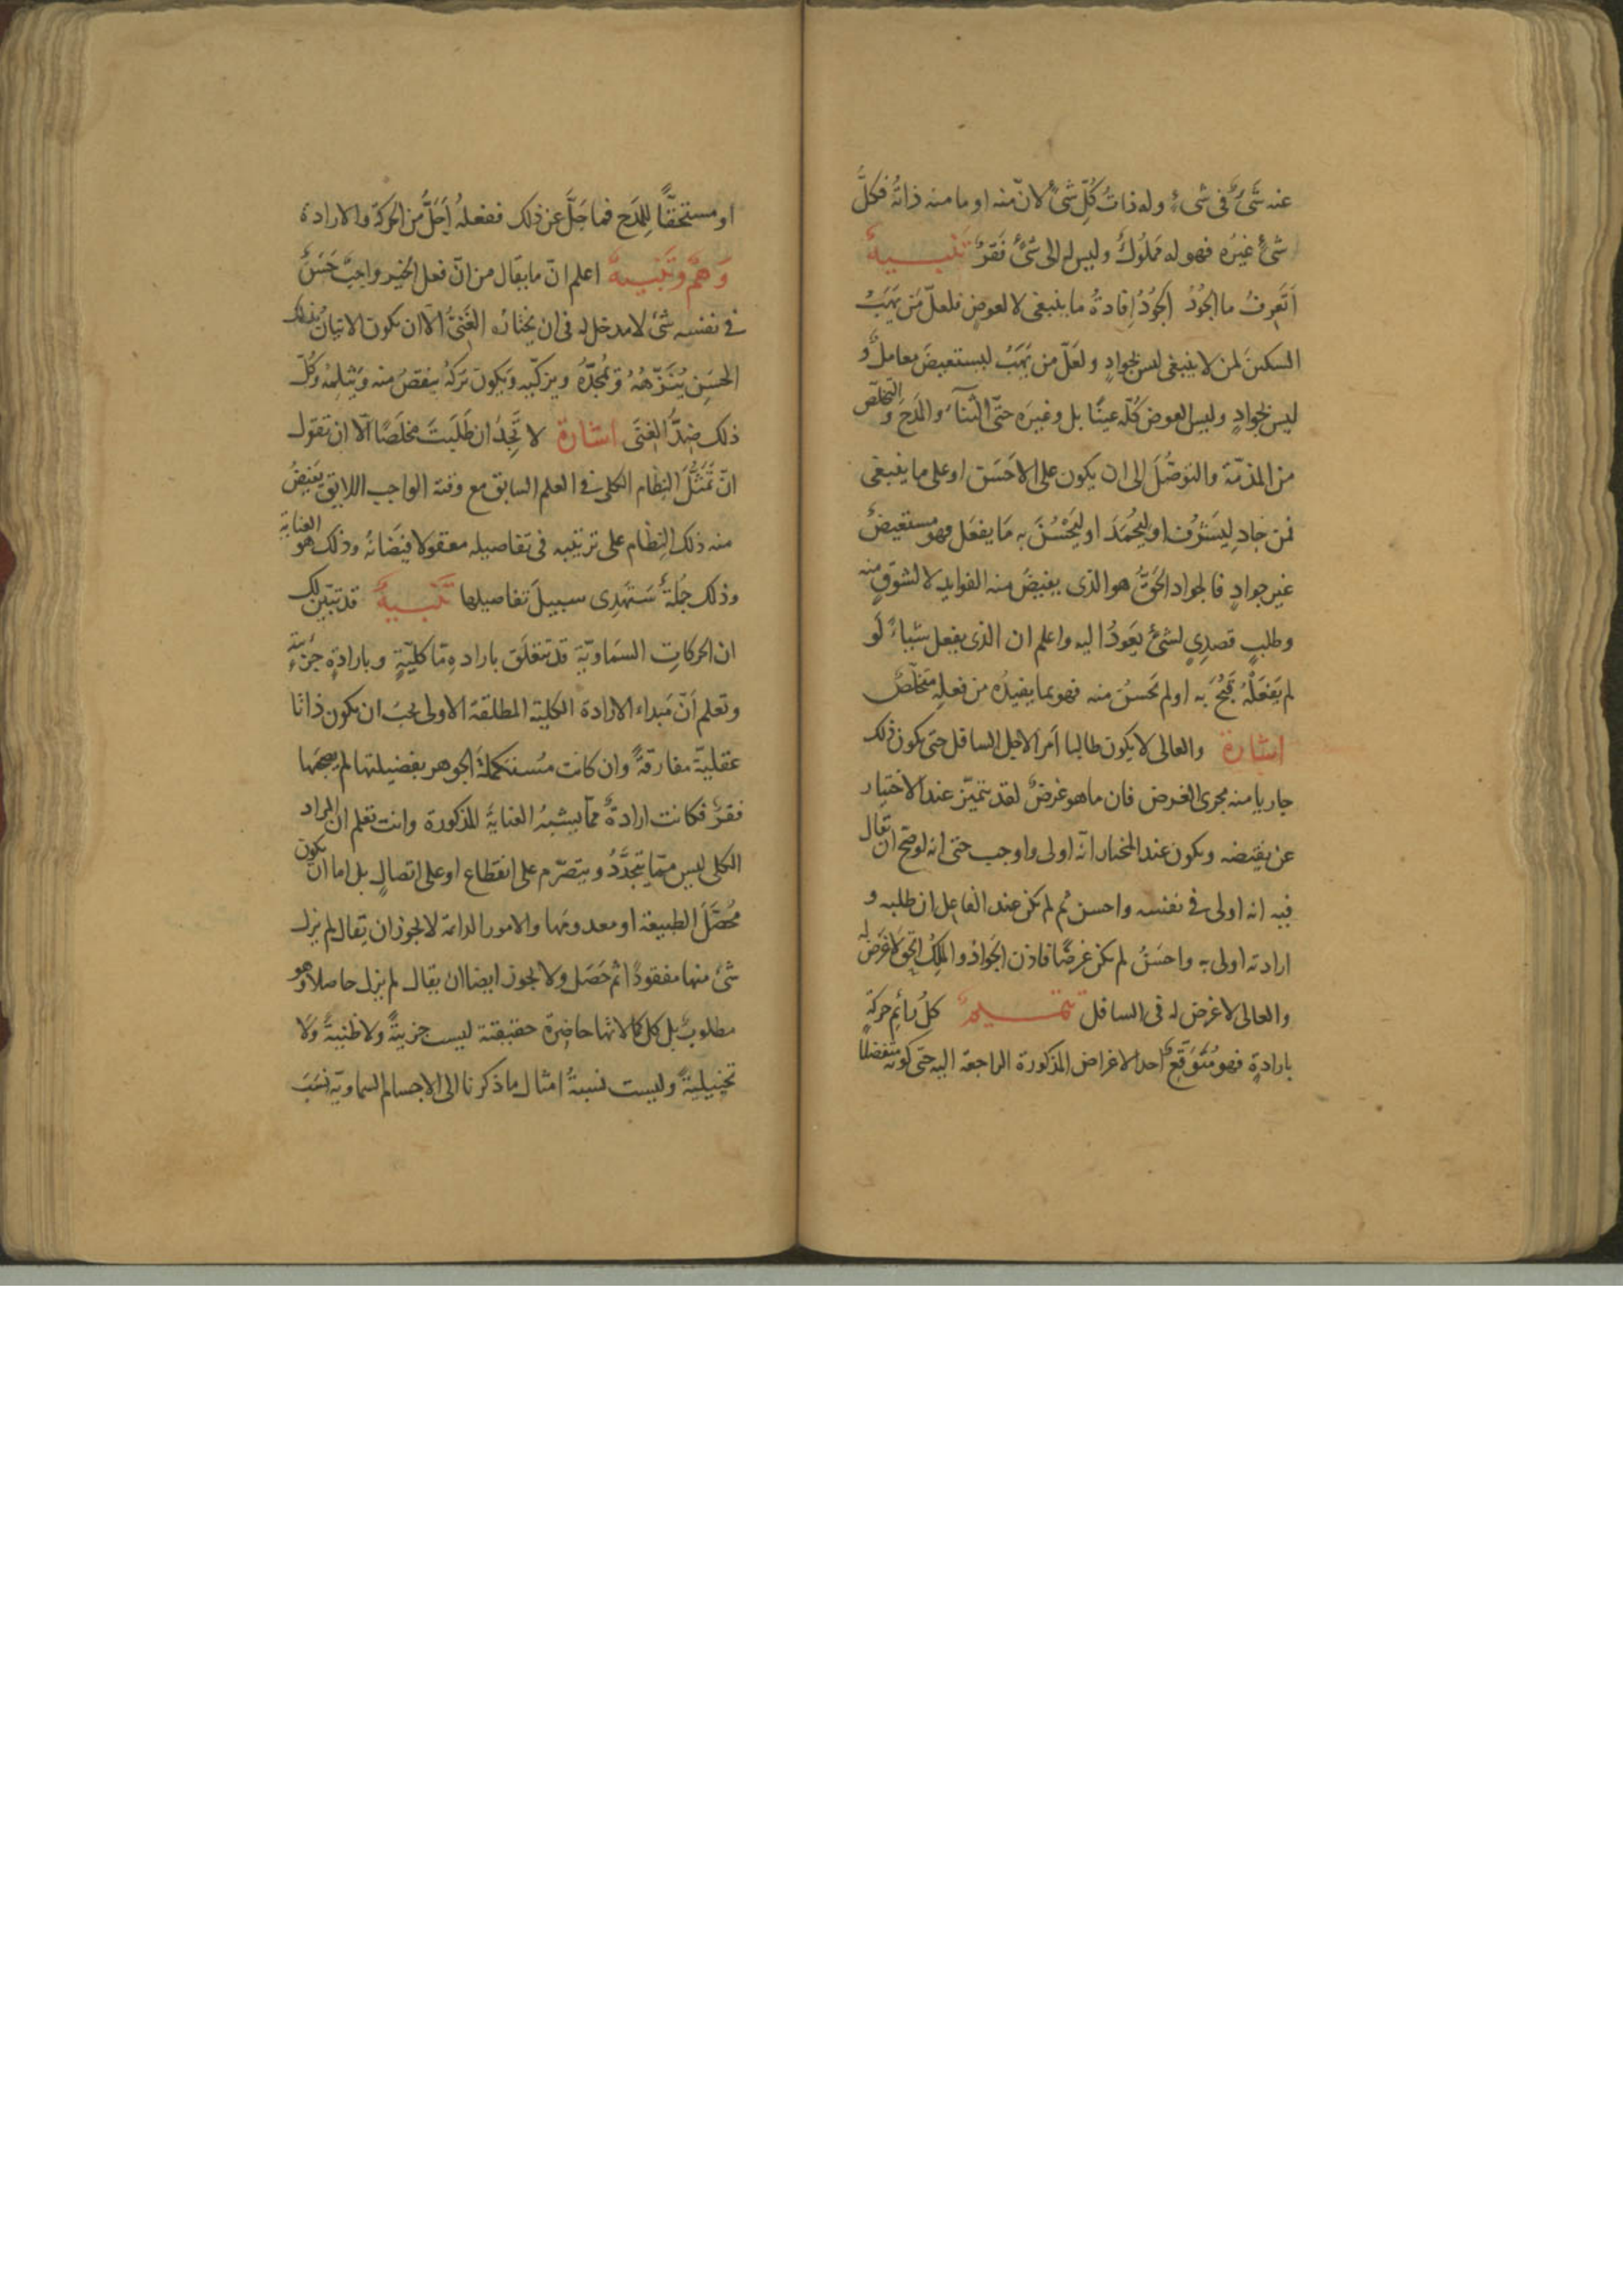 عنه شَیٌٔ فی شیءٍ وله ذاتُ كُلِّ شیٔ لانّ منه او ما منه ذاتُه فكلُّ
شیٔ غیرُه فهو له مَملُوكٌ ولیس له الی شیٔ فَقرٌ تَنبیهٌ
اَتَعرِفُ ما الجُودُ الجُودُ اِفادةُ ما ینبغی لا لعوضٍ فلعلّ مَن یَهَبُ
السكینَ لمن لا ینبغی لیس بجوادٍ ولَعَلّ من یَهَبُ لیستعیضَ معاملٌ و
لیس بجوادٍ ولیس العوض كُلّه عینًا بل وغیرَه حتّی الثنآءَ والمَدحَ والتخلّصَ
من المذمّة والتوصُّلَ الی ان یكون علی الاحسَن او علی ما ینبغی
فمن جاد لِیَشرُف او لِیُحمَدَ او لِیَحْسُنَ به مَا یفعَل فهو مستعیضٌ
غیر جوادٍ فالجواد الحقّ هو الذی یفیضَ منه الفواید لا لشوقٍ منه
وطلبٍ قصدِیٍ لشیٔ یَعودُ الیه واعلم ان الذی یفعل شیاءً لَو
لم یَفعَلْهُ قَبُحَ به او لم یَحسُن منه فهو بما یفیدُه من فعله متخلّصٌ
اشارة والعالی لا یكون طالبا اَمرًا لاجل السافل حتی یكون ذلك
جاریا منه مجری الغرض فان ما هو غرضٌ لقد یتمیّز عند الاختیار
عن نقیضه ویكون عند المختار انّه اولی واوجب حتی انه لو صَحّ ان یقال
فیه انه اولی فی نفسه واحسن ثم لم یكن عند الفاعل ان طلبه و
ارادته اولی به واحسَنُ لم یكن غرضًا فاذن الجَوادُ والمَلِكُ الحقّ لا غَرَضَ له
والعالی لا غرض له فی السافل تتمــیمٌ كلُّ دائمِ حركةٍ
بارادةٍ فهو مُتَوَقِّعٌ احد الاغراض المذكورة الراجعة الیه حتی كونه متفضلًا
او مستحقًّا لِلمَدحِ فما جَلَّ عن ذلك ففعلهُ اَجَلُّ من الحركة والارادة
وَهمٌ وتَنبیهٌ اعلم انّ ما یقال من انّ فعل الخیر واجبٌ حَسَنٌ
فی نفسه شیٔ لا مدخل له فی ان یختاره الغَنیُّ الّا ان یكون الاتیان بذلك
الحسَنِ یُنَزّههُ وَیُمجّدُهُ ویزكّیه وَیكون تركهُ ینقصُ منه وَیثلِمُهُ وكُلّ
ذلك ضِدُّ الغِنَی اشارة لا تَجِدُ ان طَلَبتَ مخلَصًا الّا ان تقول
انّ تَمَثُّلَ النِظام الكلی فی العلم السابق مع وقته الواجب اللایق یَفیضُ
منه ذلك النِظام علی ترتیبه فی تفاصیله معقولا فیَضانُه وذلك هو العنایة
وذلك جُملةٌ سَتهدی سبیلَ تفاصیلها تَنبیهٌ قد تبیّن لك
ان الحركاتِ السَماویّة قد تتعلّق بارادةٍ مّا كلیّةٍ وبارادةٍ جزءیة
وتعلم اَنّ مَبداء الارادة الكلیة المطلقة الاولی یجبُ ان یكون ذاتا
عقلیّة مفارقةً وان كانت مُستكملةَ الجوهر بفضیلتها لم یصحبها
فقرٌ فكانت ارادةً ممّا یشبهُ العنایةَ المذكورة وانت تعلم ان المراد
الكلی لیس ممّا یتجدَّدُ ویتصرّم علی انقطاع او علی اتصالٍ بل اما ان یكون
مُحصَّلَ الطبیعة او معدومَها والامور الدائمة لا یجوز ان یقال لم یزل
شیٔ منها مفقودًا ثم حَصَل ولا یجوز ایضا ان یقال لم یزل حاصلا وهو
مطلوبٌ بل كل كمالاتها حاضِرة حقیقیة لیست جزییةً ولا ظنیةً ولا
تخییلیةً ولیست نسبةُ امثال ما ذكرنا الی الاجسام السماویّة نسَبَ